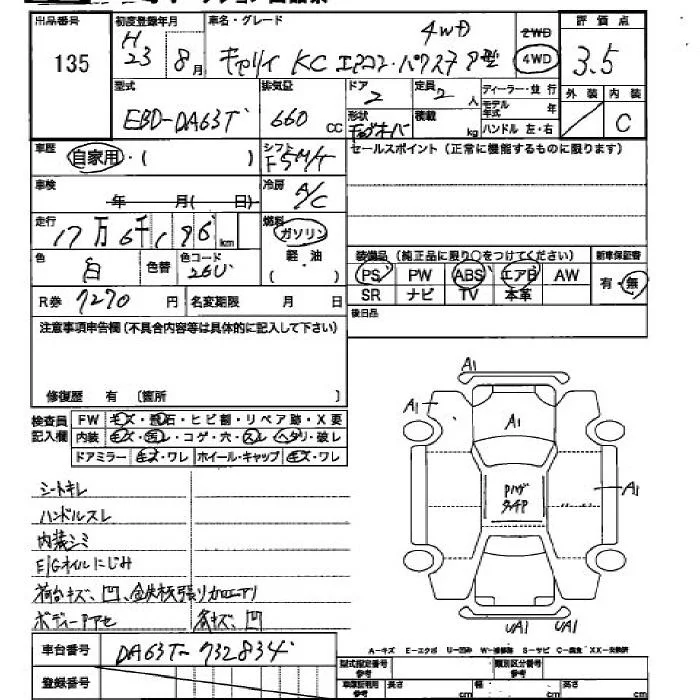 出品番号 初度登録年月 車名・グレード 評価点
135 H23 8月 キャリイ KC エアコン・パワステ 4WD 2WD 4WD 3.5
型式 排気量 ドア 定員 ディーラー・並行 外装 内装
EBD-DA63T 660cc 2 2人 モデル年式 年
形状 積載 kg ハンドル 左・右 C
車歴 自家用・( ) シフト F5M/T セールスポイント(正常に機能するものに限ります)
車検 年 月( 日) 冷房 A/C
走行 17万6千196km 燃料 ガソリン
軽油
( )
色 白 色替 色コード 26U
装備品(純正品に限り○をつけてください) 新車保証書
PS PW ABS エアB AW 有・無
SR ナビ TV 本革
R券 7270円 名変期限 月 日
後日品
注意事項申告欄(不具合内容等は具体的に記入して下さい)
修復歴 有 〔箇所 〕
検査員記入欄
FW キズ・飛石・ヒビ割・リペア跡・X要
内装 キズ・汚レ・コゲ・穴・スレ・ヘタリ・破レ
ドアミラー キズ・ワレ ホイール・キャップ キズ・ワレ
シートキレ
ハンドルスレ
内装シミ
E/Gオイルにじみ
荷台キズ、凹、鉄板張り
ボディーアセ 各キズ、凹
A1
A1
A1
A1
UA1 UA1
A-キズ E-エクボ U-凹み W-補修跡 S-サビ C-腐食 XX-交換済
車台番号 DA63T-732834
登録番号
型式指定番号 参考 類別区分番号 参考
車庫証明用 参考 長さ cm 幅 cm 高さ cm